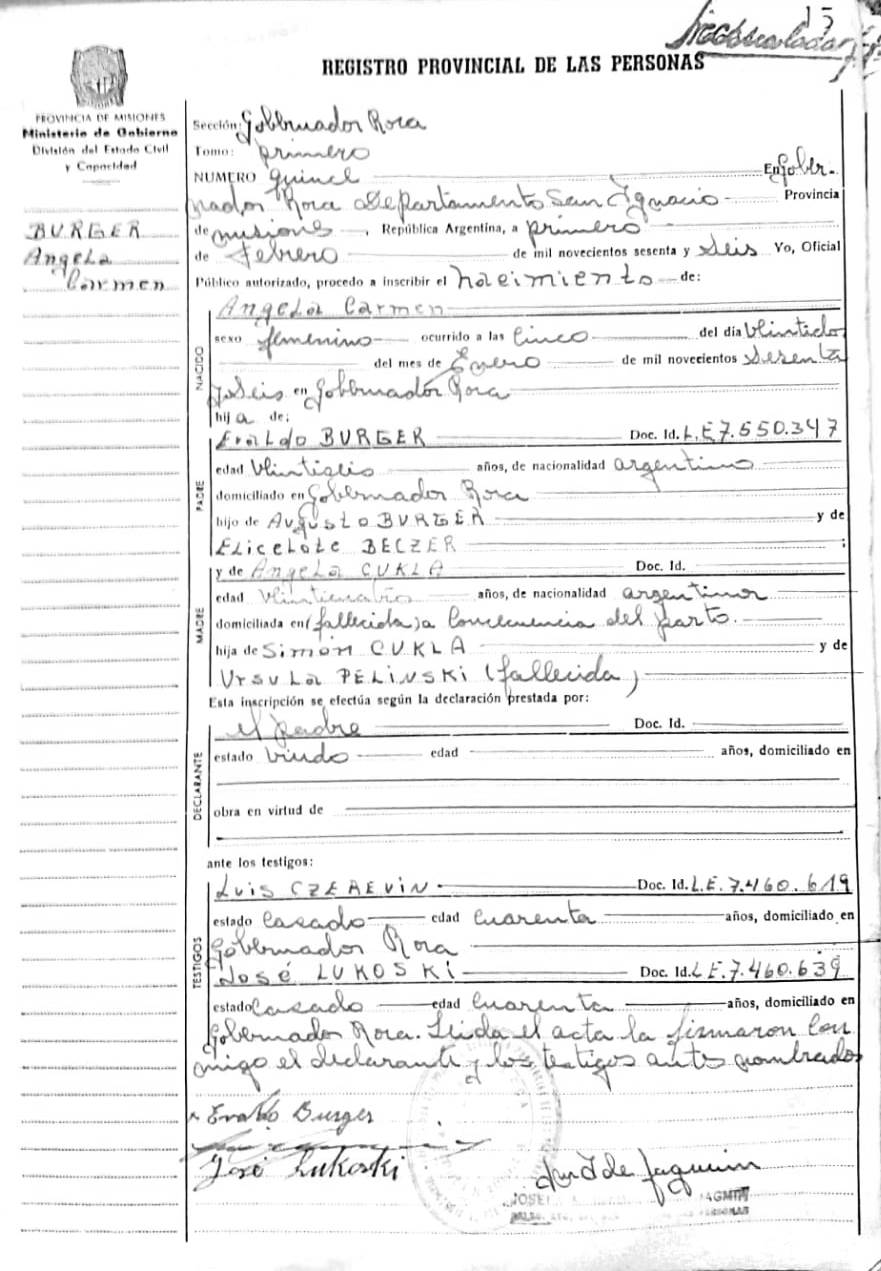 15
REGISTRO PROVINCIAL DE LAS PERSONAS
PROVINCIA DE MISIONES
Ministerio de Gobierno
División del Estado Civil
y Capacidad
BURGER
Angela
Carmen
Sección: Gobernador Roca
Tomo: primero
NUMERO quince En Gober-
nador Roca departamento San Ignacio Provincia
de misiones, República Argentina, a primero
de Febrero de mil novecientos sesenta y seis Yo, Oficial
Público autorizado, procedo a inscribir el nacimiento de:
NACIDO
Angela Carmen
sexo femenino ocurrido a las cinco del día veintidos
del mes de Enero de mil novecientos sesenta
y seis en Gobernador Roca
hija de:
PADRE
Evaldo BURGER Doc. Id. L.E 7.550.347
edad veintiseis años, de nacionalidad argentino
domiciliado en Gobernador Roca
hijo de Augusto BURGER y de
Elicelote BECZER ;
MADRE
y de Angela CUKLA Doc. Id.
edad veinticuatro años, de nacionalidad argentina
domiciliada en (fallecida) a consecuencia del parto.
hija de Simón CUKLA y de
Ursula PELINSKI (fallecida)
Esta inscripción se efectúa según la declaración prestada por:
DECLARANTE
el padre Doc. Id.
estado viudo edad años, domiciliado en
obra en virtud de
ante los testigos:
TESTIGOS
Luis CZEREVIN Doc. Id. L.E. 7.460.619
estado casado edad cuarenta años, domiciliado en
Gobernador Roca
José LUKOSKI Doc. Id. L.E. 7.460.639
estado casado edad cuarenta años, domiciliado en
Gobernador Roca. Leida el acta la firmaron con
migo el declarante y los testigos antes nombrados
Evaldo Burger
José Lukoski